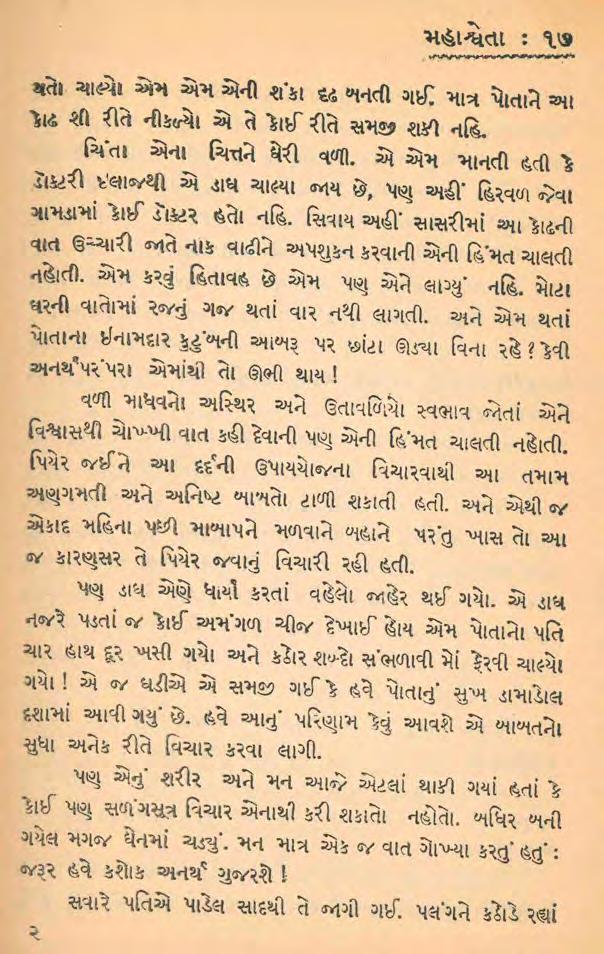 મહાશ્વેતા : ૧૭
થતો ચાલ્યો એમ એમ એની શંકા દૃઢ બનતી ગઈ. માત્ર પોતાને આ
કોઢ શી રીતે નીકળ્યો એ તે કોઈ રીતે સમજી શકી નહિ.
ચિંતા એના ચિત્તને ઘેરી વળી. એ એમ માનતી હતી કે
ડૉક્ટરી ઇલાજથી એ ડાઘ ચાલ્યા જાય છે, પણ અહીં હિરવળ જેવા
ગામડામાં કોઈ ડૉક્ટર હતો નહિ. સિવાય અહીં સાસરીમાં આ કોઢની
વાત ઉચ્ચારી જાતે નાક વાઢીને અપશુકન કરવાની એની હિંમત ચાલતી
નહોતી. એમ કરવું હિતાવહ છે એમ પણ એને લાગ્યું નહિ. મોટા
ઘરની વાતોમાં રજનું ગજ થતાં વાર નથી લાગતી. અને એમ થતાં
પોતાના ઈનામદાર કુટુંબની આબરૂ પર છાંટા ઊડ્યા વિના રહે ? કેવી
અનર્થપરંપરા એમાંથી તો ઊભી થાય !
વળી માધવનો અસ્થિર અને ઉતાવળિયો સ્વભાવ જોતાં એને
વિશ્વાસથી ચોખ્ખી વાત કહી દેવાની પણ એની હિંમત ચાલતી નહોતી.
પિયેર જઈને આ દર્દની ઉપાયયોજના વિચારવાથી આ તમામ
અણગમતી અને અનિષ્ટ બાબતો ટાળી શકાતી હતી. અને એથી જ
એકાદ મહિના પછી માબાપને મળવાને બહાને પરંતુ ખાસ તો આ
જ કારણસર તે પિયેર જવાનું વિચારી રહી હતી.
પણ ડાઘ એણે ધાર્યા કરતાં વહેલો જાહેર થઈ ગયો. એ ડાઘ
નજરે પડતાં જ કોઈ અમંગળ ચીજ દેખાઈ હોય એમ પોતાનો પતિ
ચાર હાથ દૂર ખસી ગયો અને કઠોર શબ્દો સંભળાવી મોં ફેરવી ચાલ્યો
ગયો ! એ જ ઘડીએ એ સમજી ગઈ કે હવે પોતાનું સુખ ડામાડોલ
દશામાં આવી ગયું છે. હવે આનું પરિણામ કેવું આવશે એ બાબતનો
સુધા અનેક રીતે વિચાર કરવા લાગી.
પણ એનું શરીર અને મન આજે એટલાં થાકી ગયાં હતાં કે
કોઈ પણ સળંગસૂત્ર વિચાર એનાથી કરી શકાતો નહોતો. બધિર બની
ગયેલ મગજ ઘેનમાં ચડ્યું. મન માત્ર એક જ વાત ગોખ્યા કરતું હતું :
જરૂર હવે કશોક અનર્થ ગુજરશે !
સવારે પતિએ પાડેલ સાદથી તે જાગી ગઈ. પલંગને કઠોડે રહ્યાં
૨